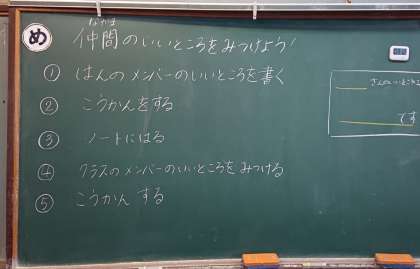 め
なかま
仲間のいいところをみつけよう!
① はんのメンバーのいいところを書く
② こうかんをする
③ ノートにはる
④ クラスのメンバーのいいところをみつける
⑤ こうかん する
さんのいいところは
です